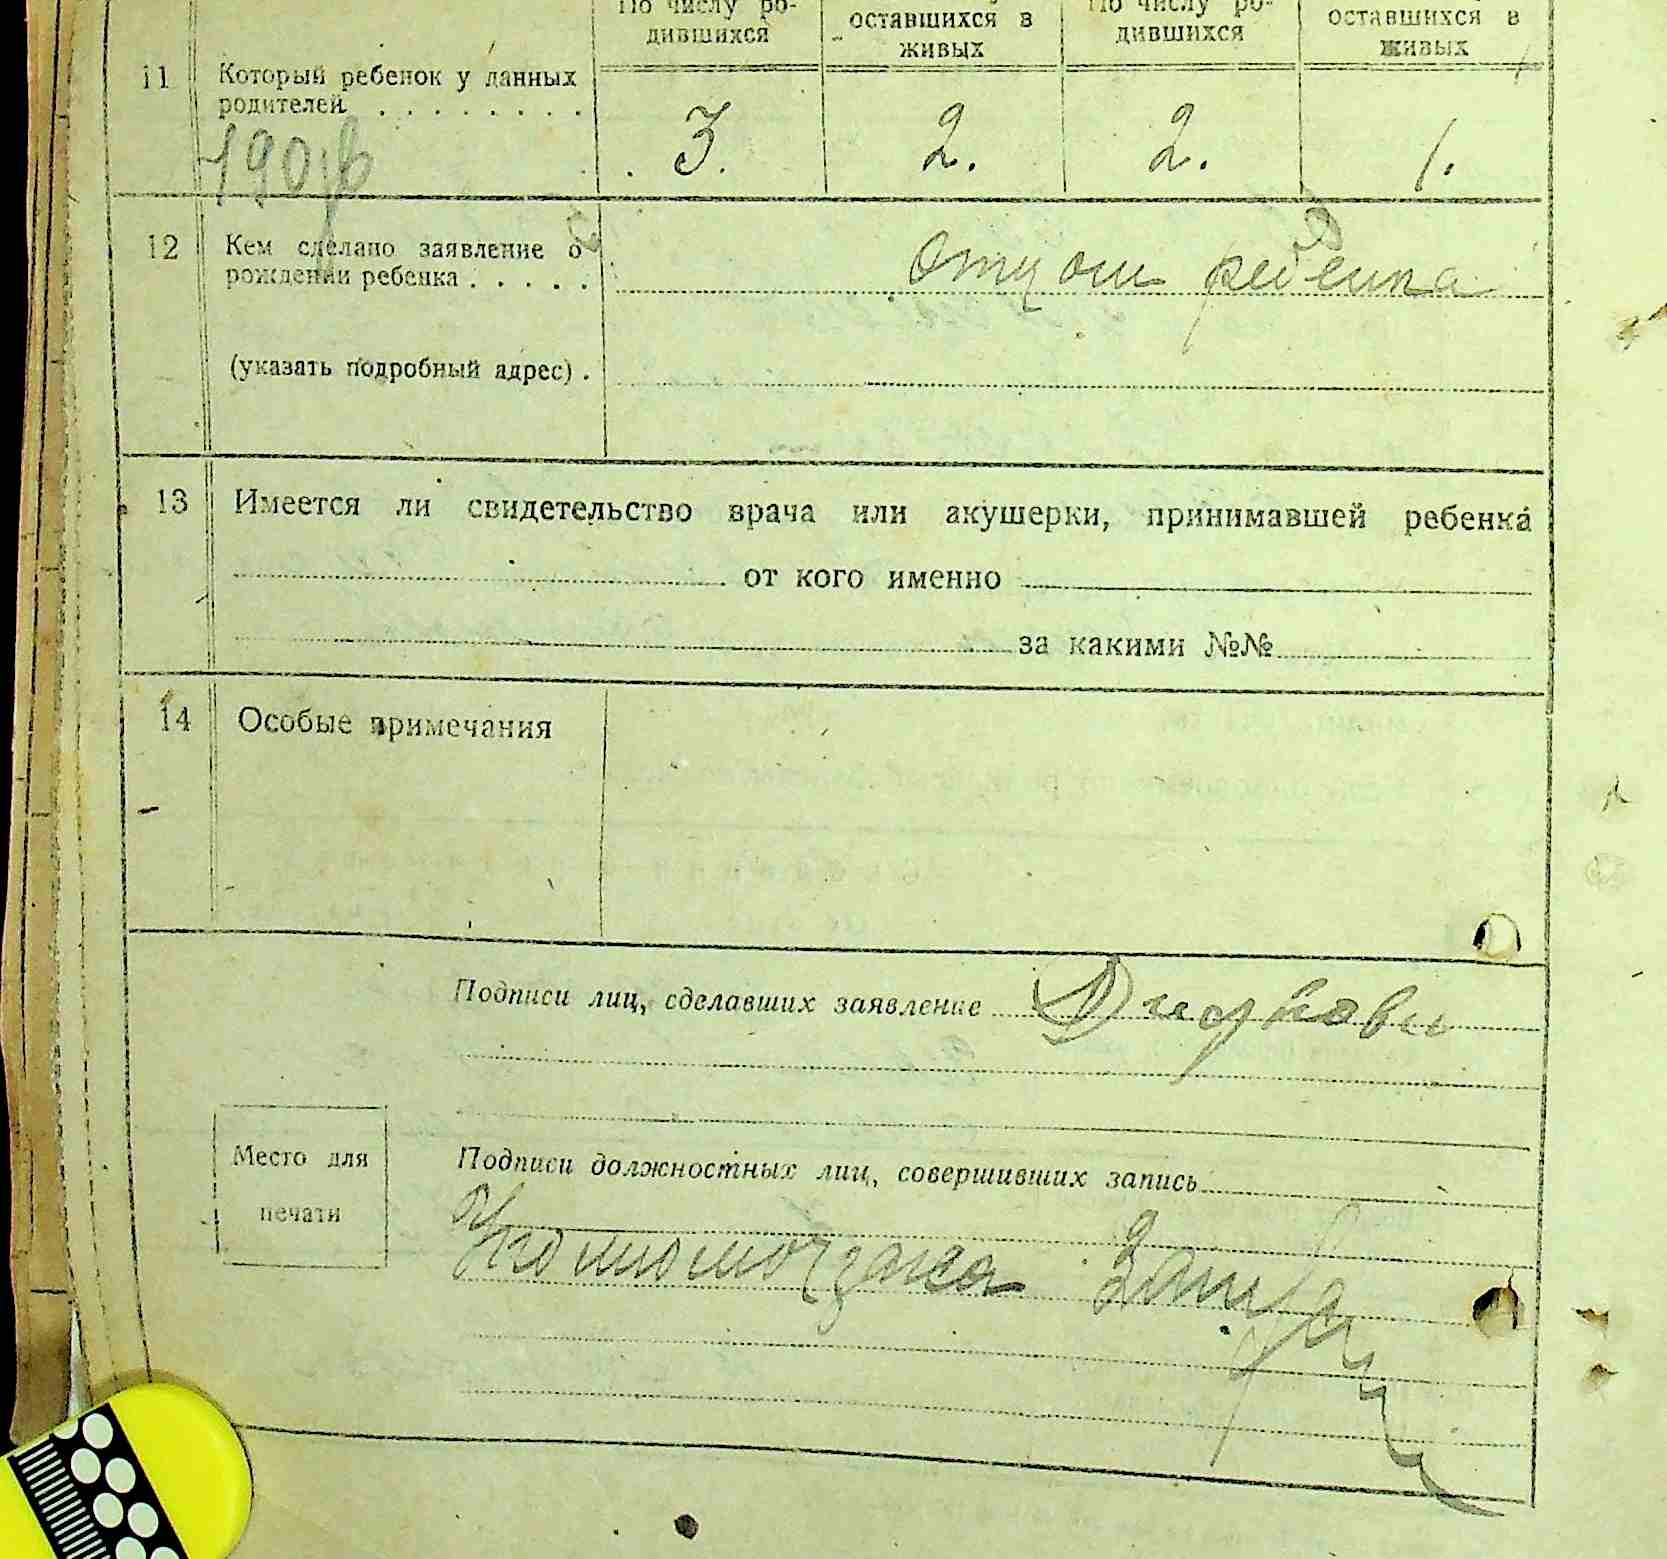 По числу ро- оставшихся в По числу ро- оставшихся в
дившихся живых дившихся живых
11 Который ребенок у данных
родителей . . . . . . . . 3. 2. 2. 1.
12 Кем сделано заявление о
рождении ребенка . . . . . отцом ребенка
(указать подробный адрес) .
13 Имеется ли свидетельство врача или акушерки, принимавшей ребенка
от кого именно
за какими №№
14 Особые примечания
Подписи лиц, сделавших заявление
Место для Подписи должностных лиц, совершивших запись
печати